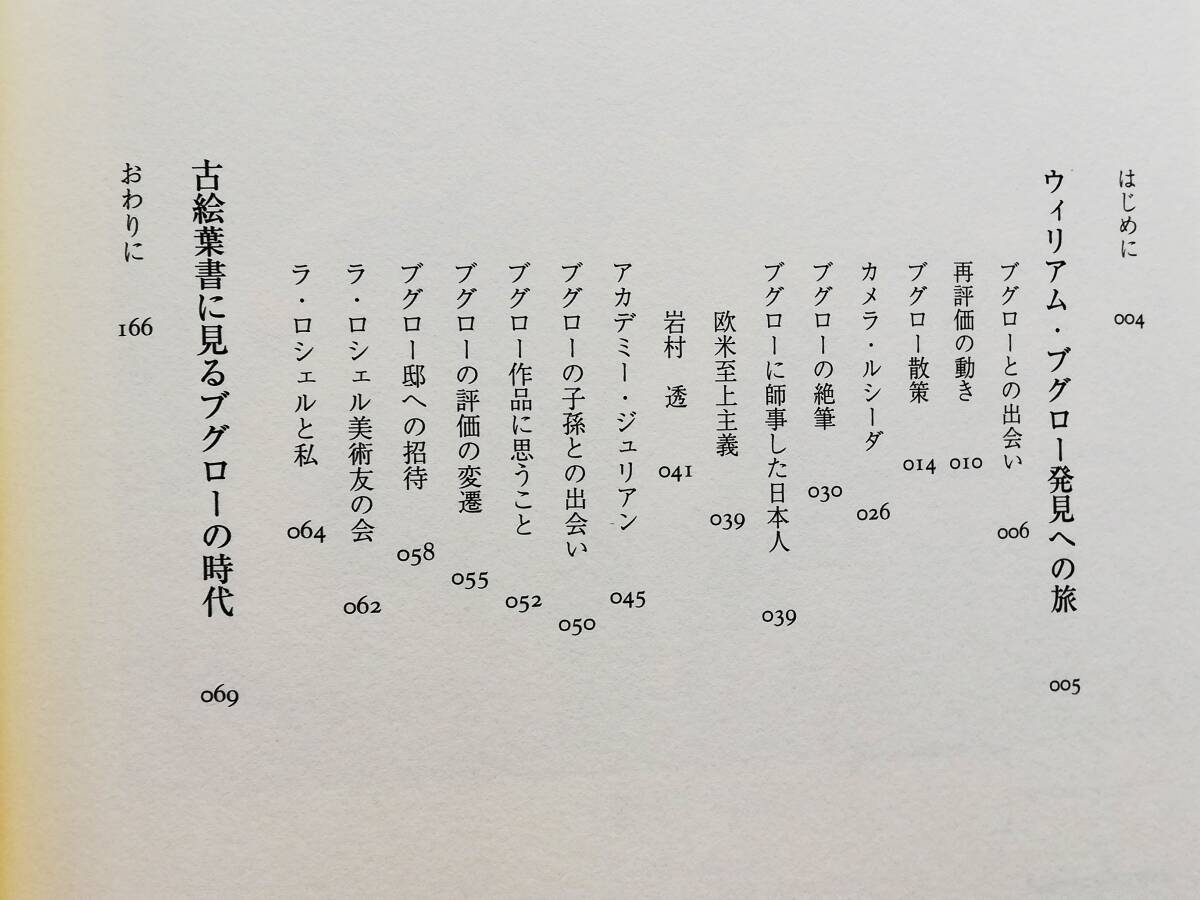 はじめに 004
ウィリアム・ブグロー発見への旅 005
ブグローとの出会い 006
再評価の動き 010
ブグロー散策 014
カメラ・ルシーダ 026
ブグローの絶筆 030
ブグローに師事した日本人 039
欧米至上主義 039
岩村　透 041
アカデミー・ジュリアン 045
ブグローの子孫との出会い 050
ブグロー作品に思うこと 052
ブグローの評価の変遷 055
ブグロー邸への招待 058
ラ・ロシェル美術友の会 062
ラ・ロシェルと私 064
古絵葉書に見るブグローの時代 069
おわりに 166